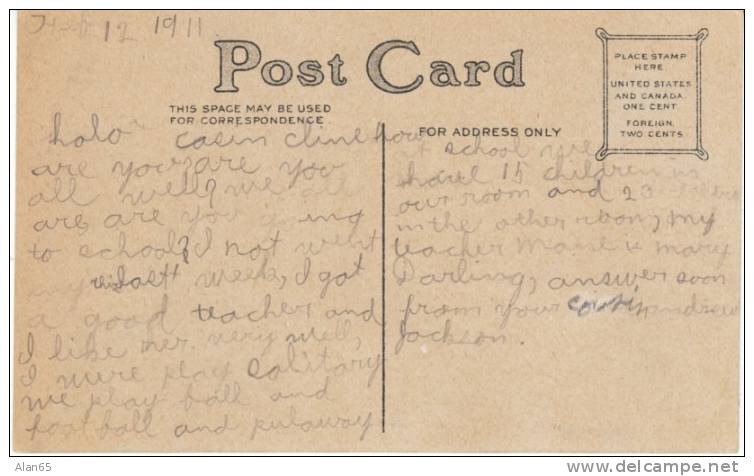 Feb 12 1911
Post Card
THIS SPACE MAY BE USED
FOR CORRESPONDENCE
FOR ADDRESS ONLY
PLACE STAMP
HERE
UNITED STATES
AND CANADA
ONE CENT
FOREIGN,
TWO CENTS
halo casin cline how
are you are you
all well? we all
are, are you going
to school? I not went
last week, I got
a good teacher and
I like her very well,
I were play solitary
we play ball and
foot ball and pulaway
at school we
have 15 children in
our room and 23
in the other room, my
teacher name is mary
Darling, answer soon
from your andrew
Jackson.
Alan65
www.delcampe.net